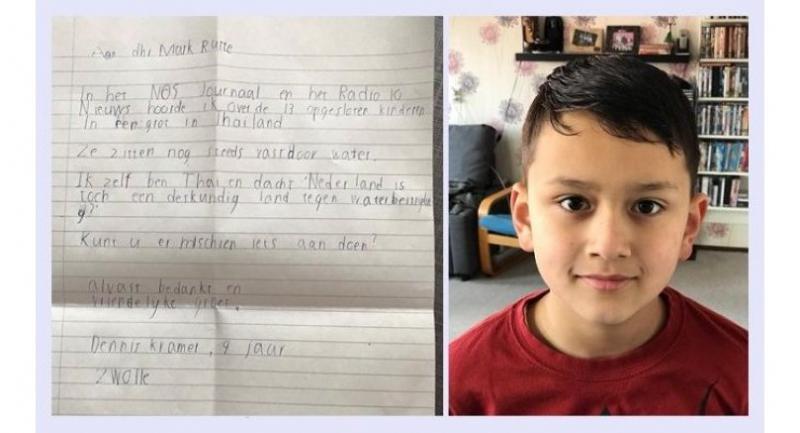 Aan dhr Mark Rutte
In het NOS Journaal en het Radio 10
Nieuws hoorde ik over de 13 opgesloten kinderen
In een grot in Thailand
Ze zitten nog steeds vast door water.
Ik zelf ben Thai en dacht 'Nederland is
toch een deskundig land tegen
Kunt u er misschien iets aan doen?
alvast bedankt en
vriendelyke groet.
Dennis Kramer, 9 jaar
Zwolle